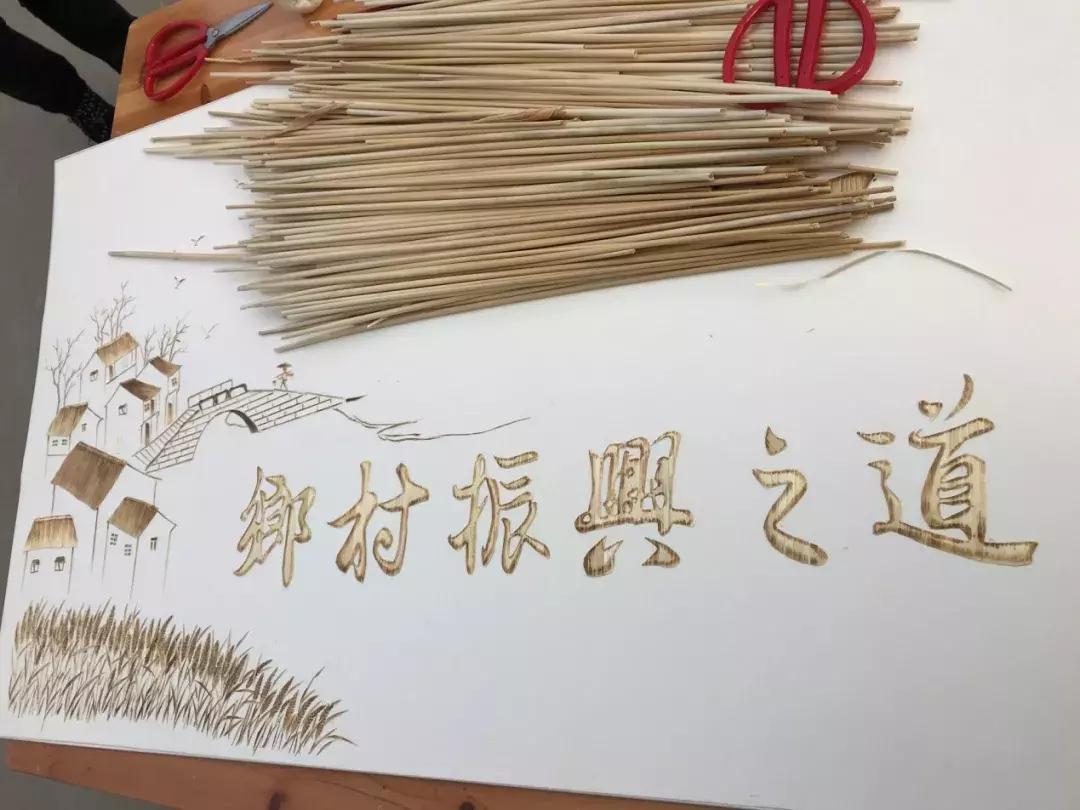 鄉村振興之道